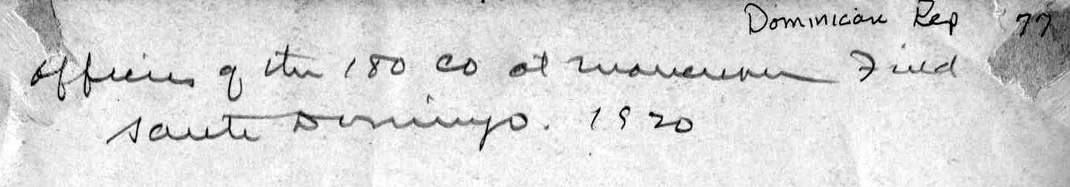 Dominican Rep 77
Officers of the 180 Co at maneuver Field
Santo Domingo. 1920